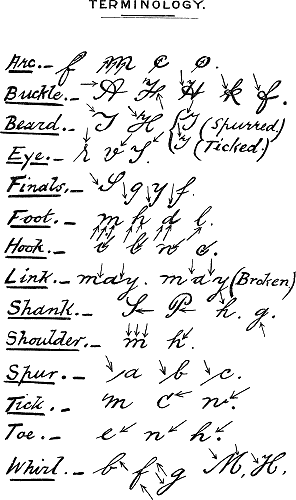 TERMINOLOGY.
Arc. - f m c o.
Buckle. - A H H k f.
Beard. - I H { I (Spurred)
Eye. - r v S. { I (Ticked)
Finals. - S g y f.
Foot. - m h d l.
Hook. - v b n c.
Link. - may. may (Broken)
Shank. - S P h. g.
Shoulder. - m h.
Spur. - a b c.
Tick. - m C n.
Toe. - e n h.
Whirl. - b f g M, H.